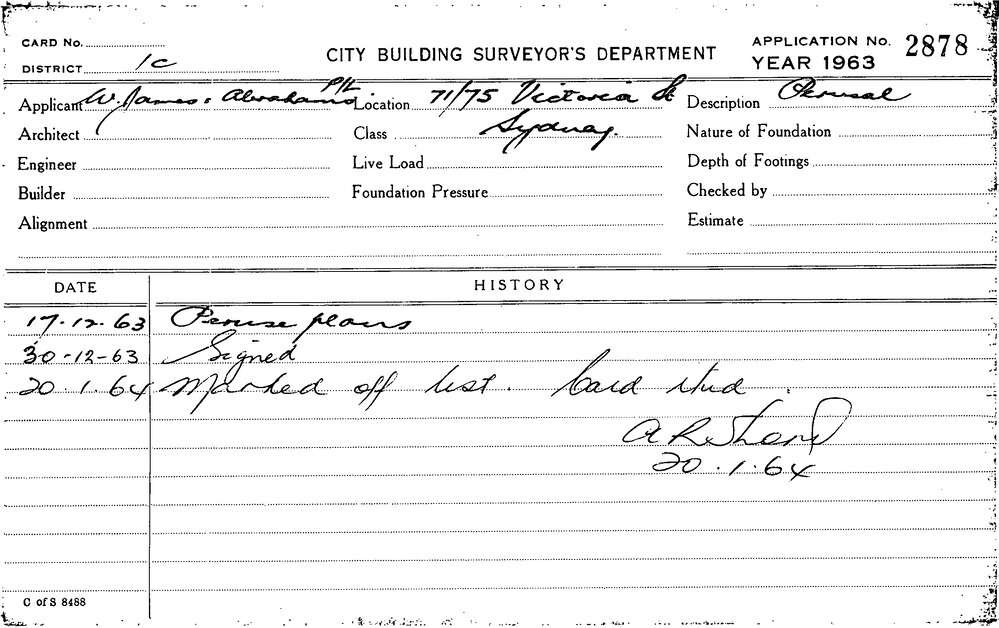 CARD No.
DISTRICT 1C
CITY BUILDING SURVEYOR'S DEPARTMENT
APPLICATION No. 2878
YEAR 1963
Applicant W. James & Abrahams P/L Location 71/75 Victoria St Description Perusal
Architect Class Sydney. Nature of Foundation
Engineer Live Load Depth of Footings
Builder Foundation Pressure Checked by
Alignment Estimate
DATE HISTORY
17-12-63 Peruse plans
30-12-63 Signed
20.1.64 Marked off list. Card
A R
20.1.64
C of S 8488